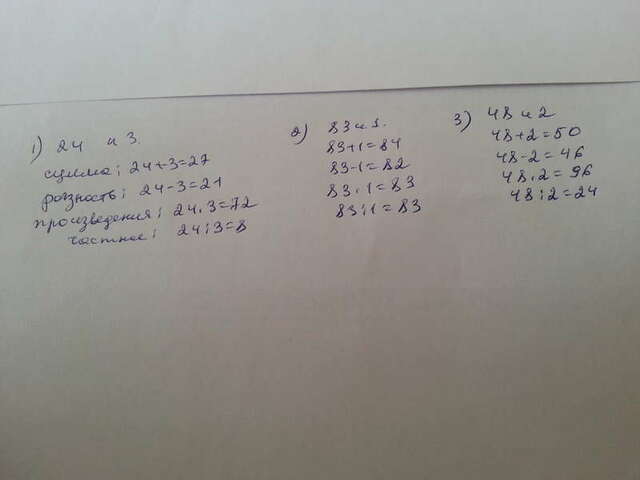 1) 24 и 3.
сумма: 24+3=27
разность: 24-3=21
произведения: 24.3=72
частное: 24:3=8
2) 83 и 1.
83+1=84
83-1=82
83.1=83
83:1=83
3) 48 и 2
48+2=50
48-2=46
48.2=96
48:2=24